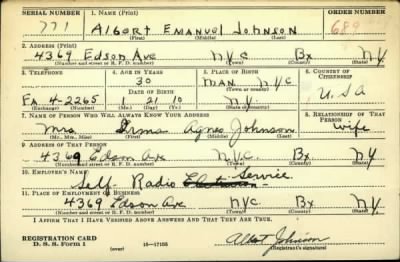 SERIAL NUMBER 1. NAME (Print) ORDER NUMBER
771 ALBERT EMANUEL JOHNSON 689
(First) (Middle) (Last)
2. ADDRESS (Print)
4369 Edson Ave NYC Bx NY
(Number and street or R. F. D. number) (Town) (County) (State)
3. TELEPHONE 4. AGE IN YEARS 5. PLACE OF BIRTH 6. COUNTRY OF CITIZENSHIP
30 MAN. NYC
(Town or county)
DATE OF BIRTH
FA. 4-2265 1 21 10 NY USA
(Exchange) (Number) (Mo.) (Day) (Yr.) (State or country)
7. NAME OF PERSON WHO WILL ALWAYS KNOW YOUR ADDRESS 8. RELATIONSHIP OF THAT PERSON
Mrs. Irma Agnes Johnson wife
(Mr., Mrs., Miss) (First) (Middle) (Last)
9. ADDRESS OF THAT PERSON
4369 Edson Ave NYC. Bx NY
(Number and street or R. F. D. number) (Town) (County) (State)
10. EMPLOYER'S NAME
Self. Radio Service
11. PLACE OF EMPLOYMENT OR BUSINESS
4369 Edson Ave NYC Bx NY
(Number and street or R. F. D. number) (Town) (County) (State)
I AFFIRM THAT I HAVE VERIFIED ABOVE ANSWERS AND THAT THEY ARE TRUE.
REGISTRATION CARD
D. S. S. Form 1 (over) 16—17105 Albert Johnson
(Registrant's signature)